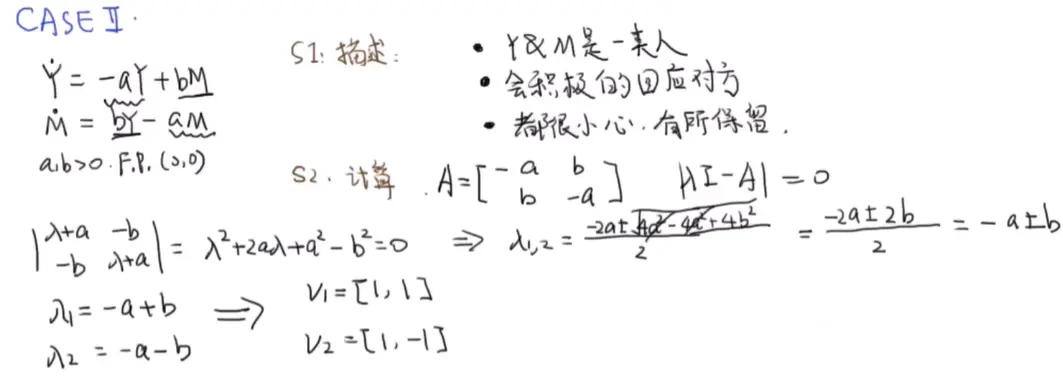 CASE Ⅱ.
Ẏ = -aY + bM
Ṁ = bY - aM
a,b>0. F.P. (0,0)
S1: 描述:
• Y&M是一类人
• 会积极的回应对方
• 都很小心.有所保留.
S2. 计算. A=[-a b b -a] |λI-A|=0
|λ+a -b -b λ+a| = λ²+2aλ+a²-b²=0 ⇒ λ1,2 = (-2a±√4a²-4a²+4b²)/2 = (-2a±2b)/2 = -a±b
λ1 = -a+b ⇒ V1=[1,1]
λ2 = -a-b V2=[1,-1]